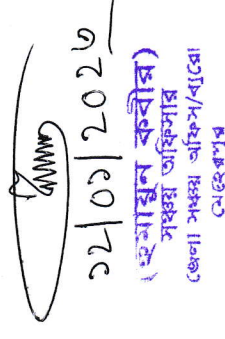 ১২/০১/২০২৬
(হুমায়ুন কবীর)
সঞ্চয় অফিসার
জেলা সঞ্চয় অফিস/ব্যুরো
মেহেরপুর